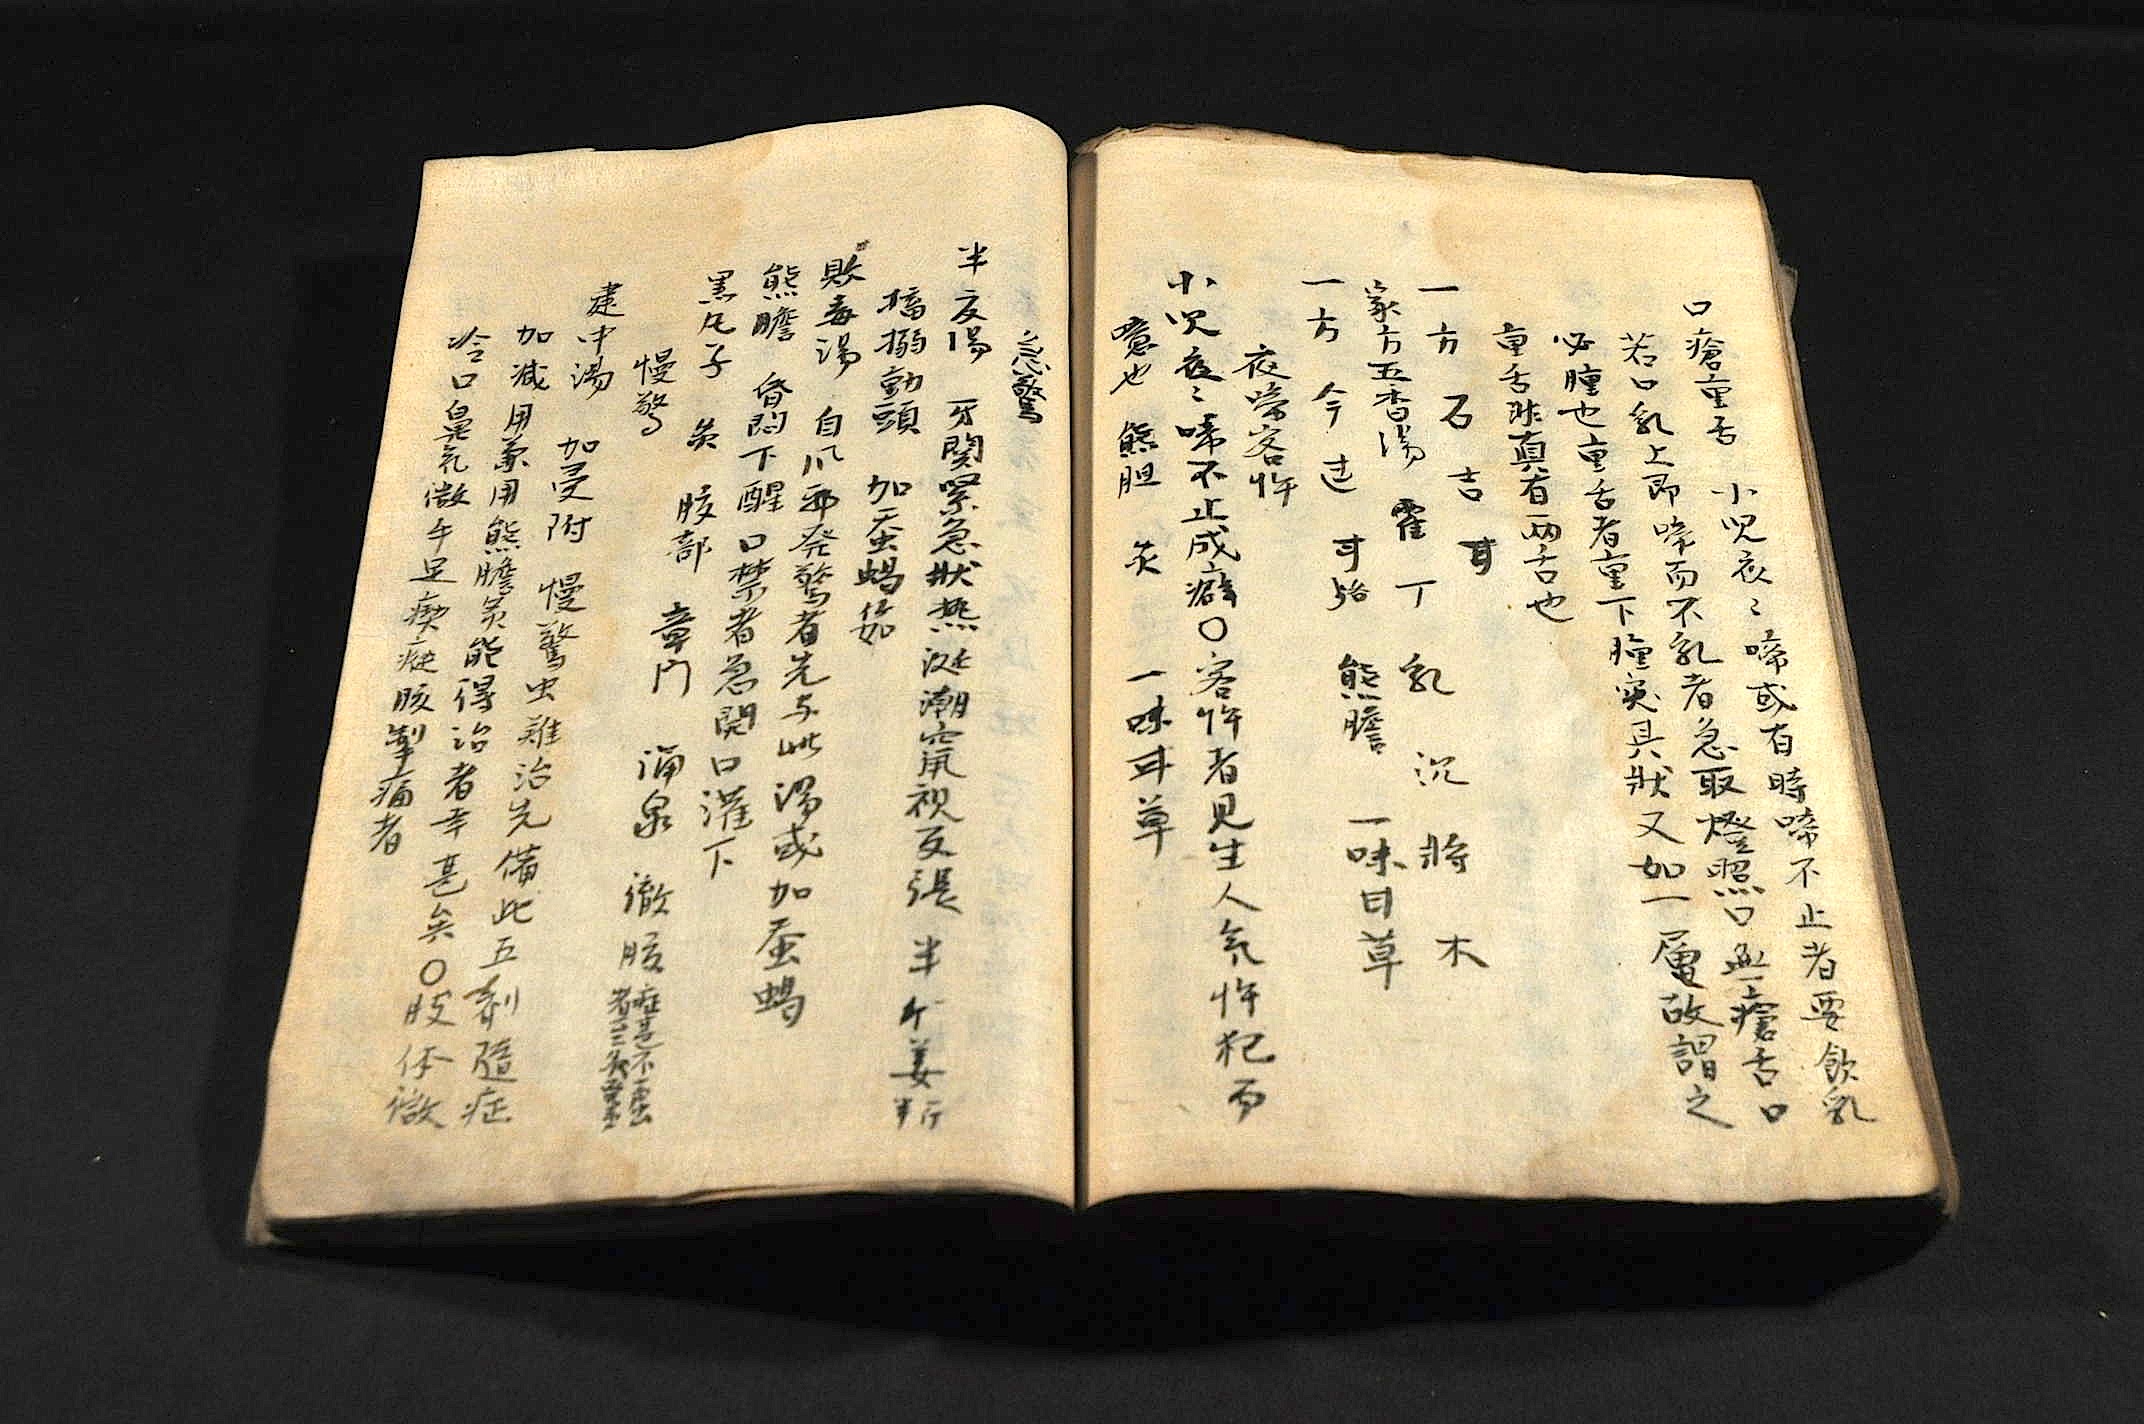 口瘡重舌 小児夜〻啼或有時啼不止者要飲乳
若口乳上即啼而不乳者急取燈照口無瘡舌口
必腫也重舌者重下腫突其状又如一層故謂之
重舌非真有両舌也
一方 石 吉 甘
家方五香湯 霍 丁 乳 沉 将 木
一方 今 辻 熊膽 一味甘草
夜啼客忤
小児夜〻啼不止成癖〇客忤者見生人気忤犯而
噫也 熊胆 灸 一味甘草
急驚
半夏湯 牙関緊急状熱涎潮窜視反張 半 姜
搐搦動頭 加蚕蝎
敗毒湯 自風邪発驚者先与此湯或加蚕蝎
熊膽 昏悶下醒口禁者急開口灌下
黒丸子 灸 章門 涌泉 徹腹
慢驚
建中湯 加曼附 慢驚虫難治先備此五剤随症
加減用薬用熊膽灸能得治者幸甚矣〇肢体徹
冷口鼻気微手足瘈瘲腹掣痛者